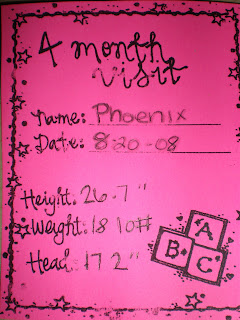 4 month
visit
Name: Phoenix
Date: 8-20-08
Height: 26.7"
Weight: 18 10#
Head: 17 2"
A
B C